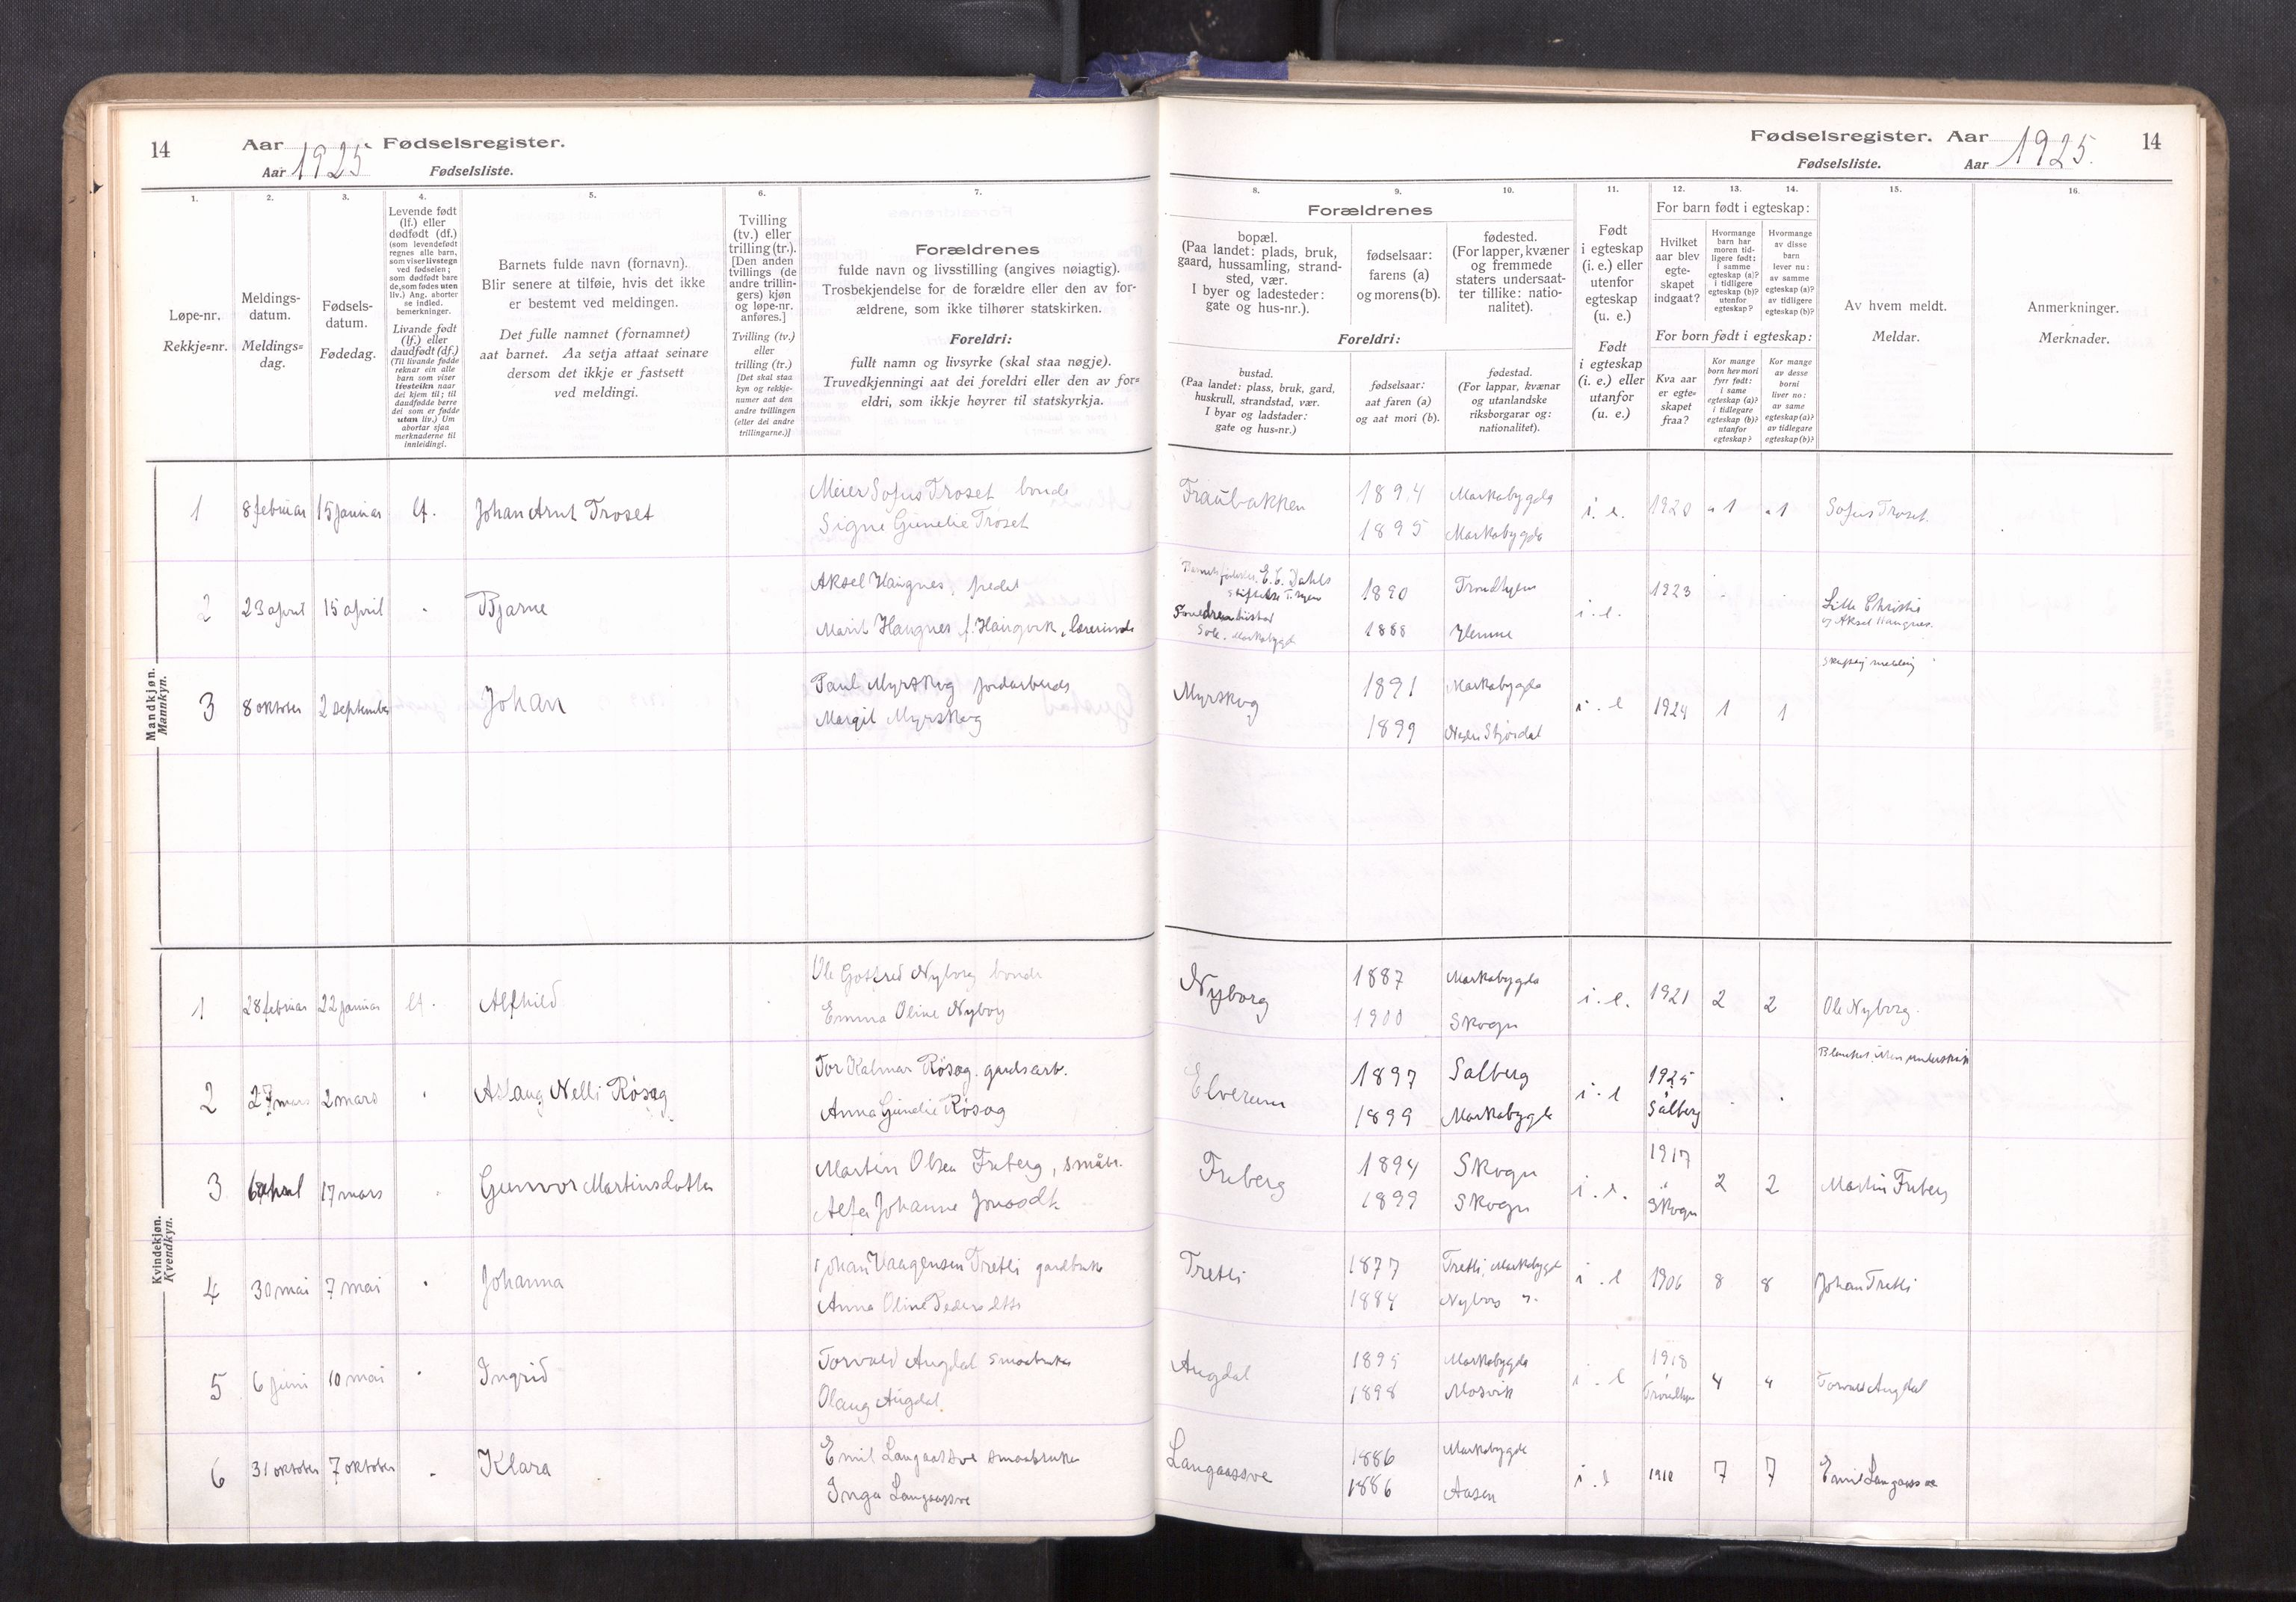 14
Aar 1925 Fødselsregister.
Aar Fødselsliste.
1. 2. 3. 4. 5. 6. 7.
Løpe-nr.
Rekkje=nr.
Meldings-
datum.
Meldings=
dag.
Fødsels-
datum.
Fødedag.
Levende født
(lf.) eller
dødfødt (df.)
(som levendefødt
regnes alle barn,
som viser livstegn
ved fødselen;
som dødfødt bare
de, som fødes uten
liv.) Ang. aborter
se indled.
bemerkninger.
Livande født
(lf.) eller
daudfødt (df.)
(Til livande fødde
reknar ein alle
barn som viser
livsteikn naar
dei kjem til; til
daudfødde berre
dei som er fødde
utan liv.) Um
abortar sjaa
merknaderne til
innleidingi.
Barnets fulde navn (fornavn).
Blir senere at tilføie, hvis det ikke
er bestemt ved meldingen.
Det fulle namnet (fornamnet)
aat barnet. Aa setja attaat seinare
dersom det ikkje er fastsett
ved meldingi.
Tvilling
(tv.) eller
trilling (tr.).
[Den anden
tvillings (de
andre trillin-
gers) kjøn
og løpe-nr.
anføres.]
Tvilling (tv.)
eller
trilling (tr.)
[Det skal staa
kyn og rekkje-
numer aat den
andre tvillingen
(eller dei andre
trillingarne.)]
Forældrenes
fulde navn og livsstilling (angives nøiagtig).
Trosbekjendelse for de forældre eller den av for-
ældrene, som ikke tilhører statskirken.
Foreldri:
fullt namn og livsyrke (skal staa nøgje).
Truvedkjenningi aat dei foreldri eller den av for=
eldri, som ikkje høyrer til statskyrkja.
Mandkjøn.
Mannkyn.
1 8 februar 15 januar lf. Johan Arnt Troset
Meier Sofus Troset bonde
Signe Gunelie Troset
2 23 april 15 april Bjarne
Aksel Haugnes
Marit Haugnes f. Haugvik, lærerinde
3 8 oktober 2 september Johan
Paul Myrskog jordarbeids
Margit Myrskog
Kvindekjøn.
Kvendkyn.
1 28 februar 22 januar lf. Alfhild
Ole Gotfred Nyborg bonde
Emma Oline Nyborg
2 27 mars 2 mars Aslaug Nelli Rösag
Tor Kalmar Rösag. gardsarb.
Anna Gunelie Rösag
3 april 17 mars Gunvor Martinsdatter
Martin Olsen Friberg, småbr.
Johanne
4 30 mai 7 mai Johanna
Johan Haagensen Tretli gardbruker
Anna Oline Pedersdtr
5 6 juni 10 mai Ingrid
Torvald Augdal smaabruker
Olaug Augdal
6 31 oktober 7 oktober Klara
Emil Langaassve smaabruker
Inga Langaassve
Fødselsregister. Aar 1925. 14
Fødselsliste. Aar
8. 9. 10. 11. 12. 13. 14. 15. 16.
Forældrenes
bopæl.
(Paa landet: plads, bruk,
gaard, hussamling, strand-
sted, vær.
I byer og ladesteder:
gate og hus-nr.).
fødselsaar:
farens (a)
og morens (b).
fødested.
(For lapper, kvæner
og fremmede
staters undersaat-
ter tillike: natio-
nalitet).
Foreldri:
bustad.
(Paa landet: plass, bruk, gard,
huskrull, strandstad, vær.
I byar og ladstader:
gate og hus=nr.)
fødselsaar:
aat faren (a)
og aat mori (b).
fødestad.
(For lappar, kvænar
og utanlandske
riksborgarar og:
nationalitet).
Født
i egteskap
(i. e.) eller
utenfor
egteskap
(u. e.)
Født
i egteskap
(i. e.) eller
utanfor
egteskap
(u. e.)
For barn født i egteskap:
Hvilket
aar blev
egte-
skapet
indgaat?
Hvormange
barn har
moren tid-
ligere født:
i samme
egteskap (a)?
i tidligere
egteskap (b)?
utenfor
egteskap?
Hvormange
av disse
barn
lever nu:
av samme
egteskap (a)?
av tidligere
egteskap (b)?
For born født i egteskap:
Kva aar
er egte-
skapet
fraa?
Kor mange
born hev mori
fyrr født:
i same
egteskap (a)?
i tidlegare
egteskap (b)?
utanfor
egteskap?
Kor mange
av desse
borni
liver no:
av same
egteskap (a)?
av tidlegare
egteskap (b)?
Av hvem meldt.
Meldar.
Anmerkninger.
Merknader.
Fraubakken 1894 Markabygda i. e. 1920 1 1 Sofus Troset.
1895 Markabygda
E. C. Dahls
Stiftelse
1890 Trondhjem i. e. 1923
1888 Hemne
Markabygda
Lille Christie
og Aksel Haugnes.
Skriftlig melding
Myrskog 1891 Markabygda i. e 1924 1 1
1899 Nedre Stjørdal
Nyborg 1887 Markabygda i. e. 1921 2 2 Ole Nyborg.
1900 Skogn
Elverum 1897 Salberg i. e 1925
1899 Markabygda Salberg
Friberg 1894 Skogn i. e. 1917 2 2 Martin Friberg
1899 Skogn Skogn
Tretli 1877 Tretli, Markabygda i. e 1906 8 8 Johan Tretli
1884 Nyborg
Augdal 1895 Markabygda i. e 1918 4 4 Torvald Augdal
1898 Mosvik
Langaassve 1886 Markabygda i. e 1910 7 7 Emil Langaassve
1886 Aasen